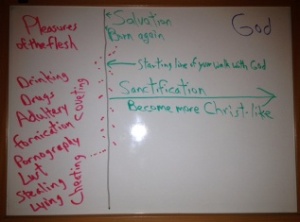 Pleasures
of the flesh
Drinking
Drugs
Adultary
Fornication
Pornography
Lust
Stealing
Lying
Coveting
Cheating
Salvation
Born again
God
Starting line of your walk with God
Sanctification
Become more Christ-like